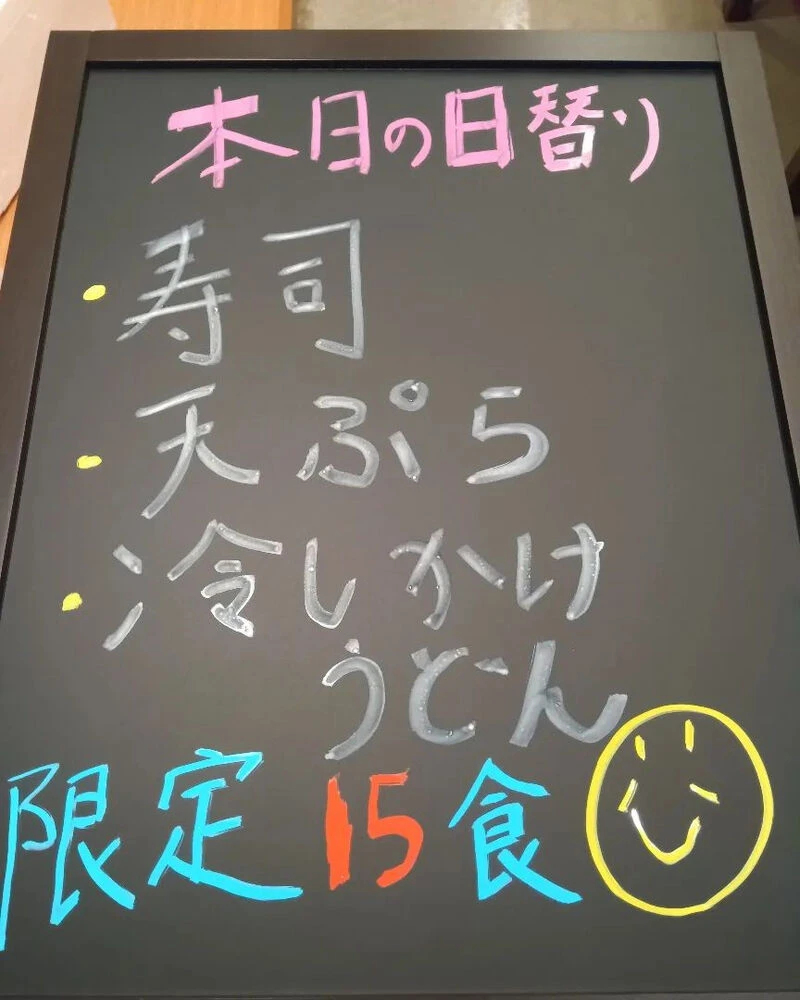 本日の日替り
・寿司
・天ぷら
・冷しかけ
うどん
限定15食